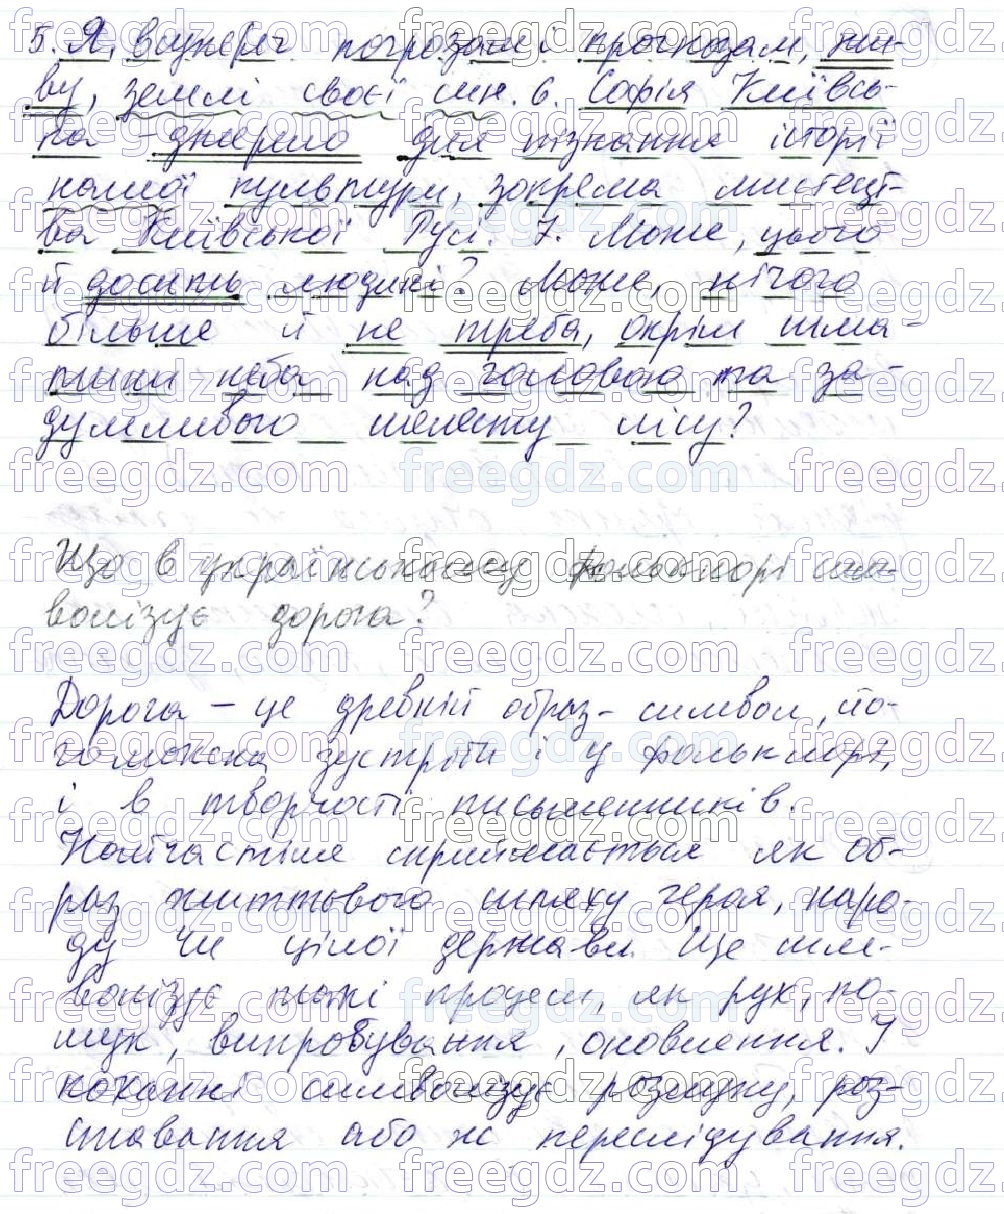 5. Я, всупереч погрозам і прогнозам, жи-
ву, землі своєї син. 6. Софія Київсь-
ка – джерело для пізнання історії
нашої культури, зокрема мистецт-
ва Київської Русі. 7. Може, цього
й досить людині? Може, нічого
більше й не треба, окрім шма-
точки неба над головою та за-
думливого шелесту лісу?
Що в українському фольклорі сим-
волізує дорога?
Дорога – це древній образ-символ, йо-
го можна зустріти і у фольклорі,
і в творчості письменників.
Найчастіше сприймається як об-
раз життєвого шляху героя, наро-
ду чи цілої держави. Ще сим-
волізує такі процеси, як рух, по-
шук, випробування, оновлення. У
коханні символізує розлуку, роз-
ставання або ж переслідування.